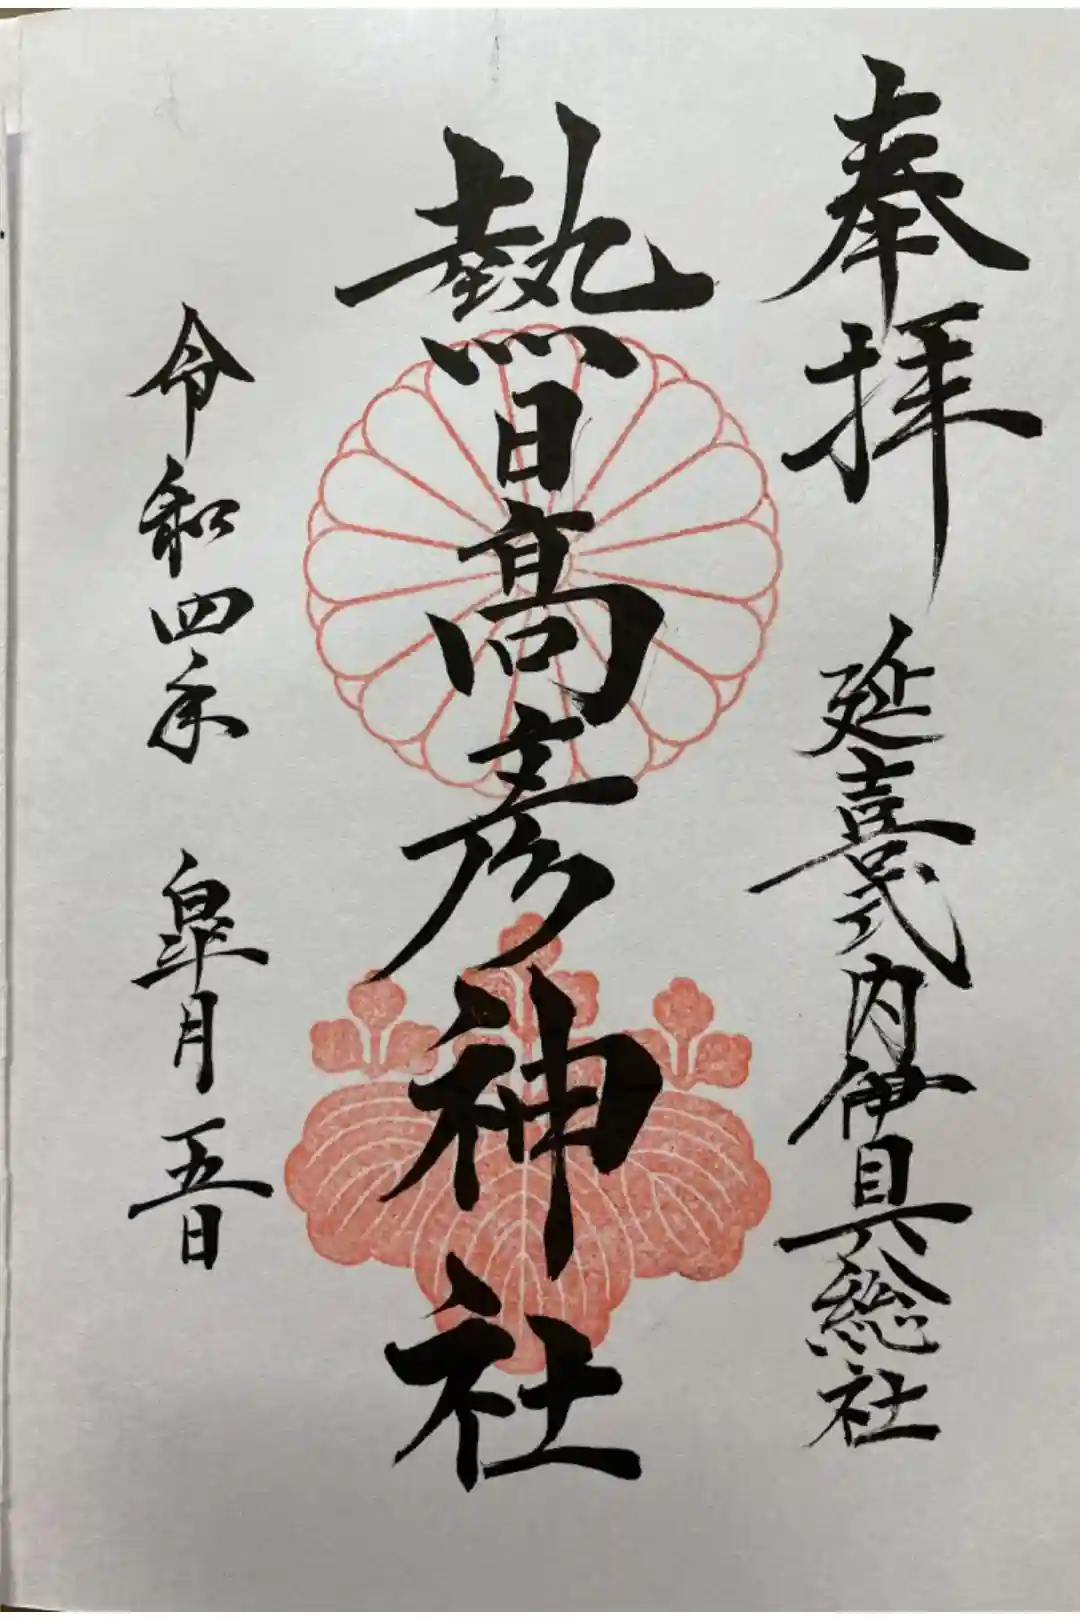 奉拝 延喜式内伊具総社
熱日高彦神社
令和四年 皐月 五日